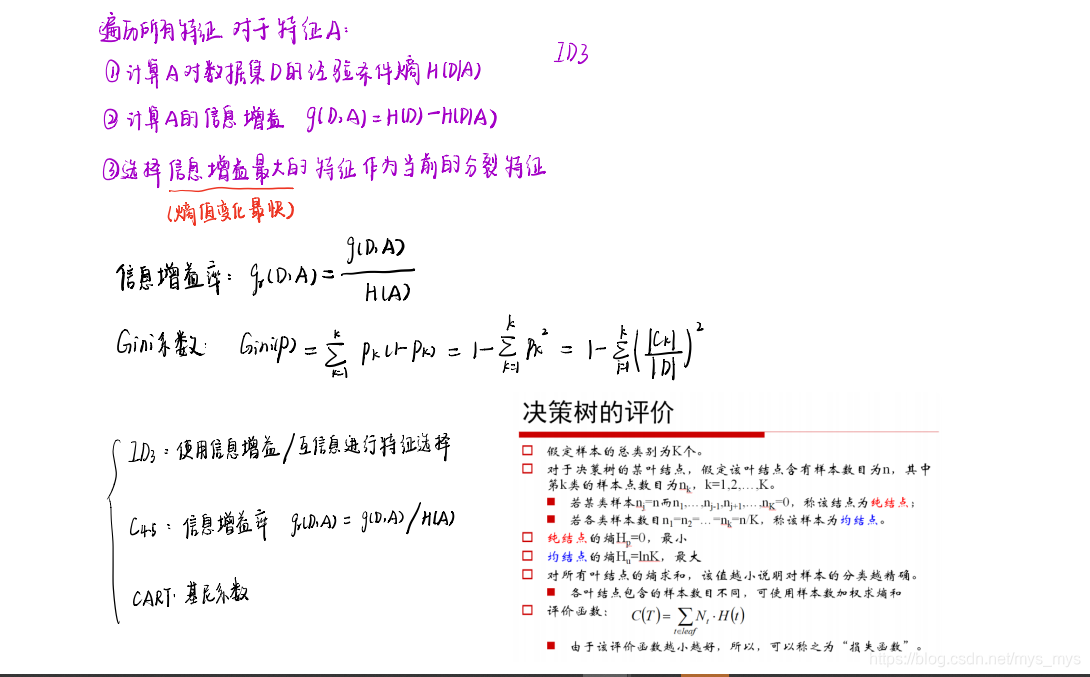 遍历所有特征 对于特征A:
ID3
①计算A对数据集D的经验条件熵 H(D|A)
②计算A的信息增益 g(D,A)=H(D)-H(D|A)
③选择信息增益最大的特征作为当前的分裂特征
(熵值变化最快)
信息增益率: gr(D,A)=g(D,A)/H(A)
Gini系数: Gini(p)=∑_{k=1}^{k} pk(1-pk)=1-∑_{k=1}^{k} pk²=1-∑_{i=1}^{k}(|Ck|/|D|)²
ID3:使用信息增益/互信息进行特征选择
C4.5:信息增益率 gr(D,A)=g(D,A)/H(A)
CART.基尼系数
决策树的评价
假定样本的总类别为K个。
对于决策树的某叶结点,假定该叶结点含有样本数目为n,其中
第k类的样本点数目为nk,k=1,2,…,K。
若某类样本nj=n而n1,…,nj-1,nj+1,…,nK=0,称该结点为纯结点;
若各类样本数目n1=n2=…=nk=n/K,称该样本为均结点。
纯结点的熵Hp=0,最小
均结点的熵Hu=lnK,最大
对所有叶结点的熵求和,该值越小说明对样本的分类越精确。
各叶结点包含的样本数目不同,可使用样本数加权求熵和
评价函数: C(T)=∑_{t∈leaf} Nt·H(t)
由于该评价函数越小越好,所以,可以称之为“损失函数”。
https://blog.csdn.net/mys_mys